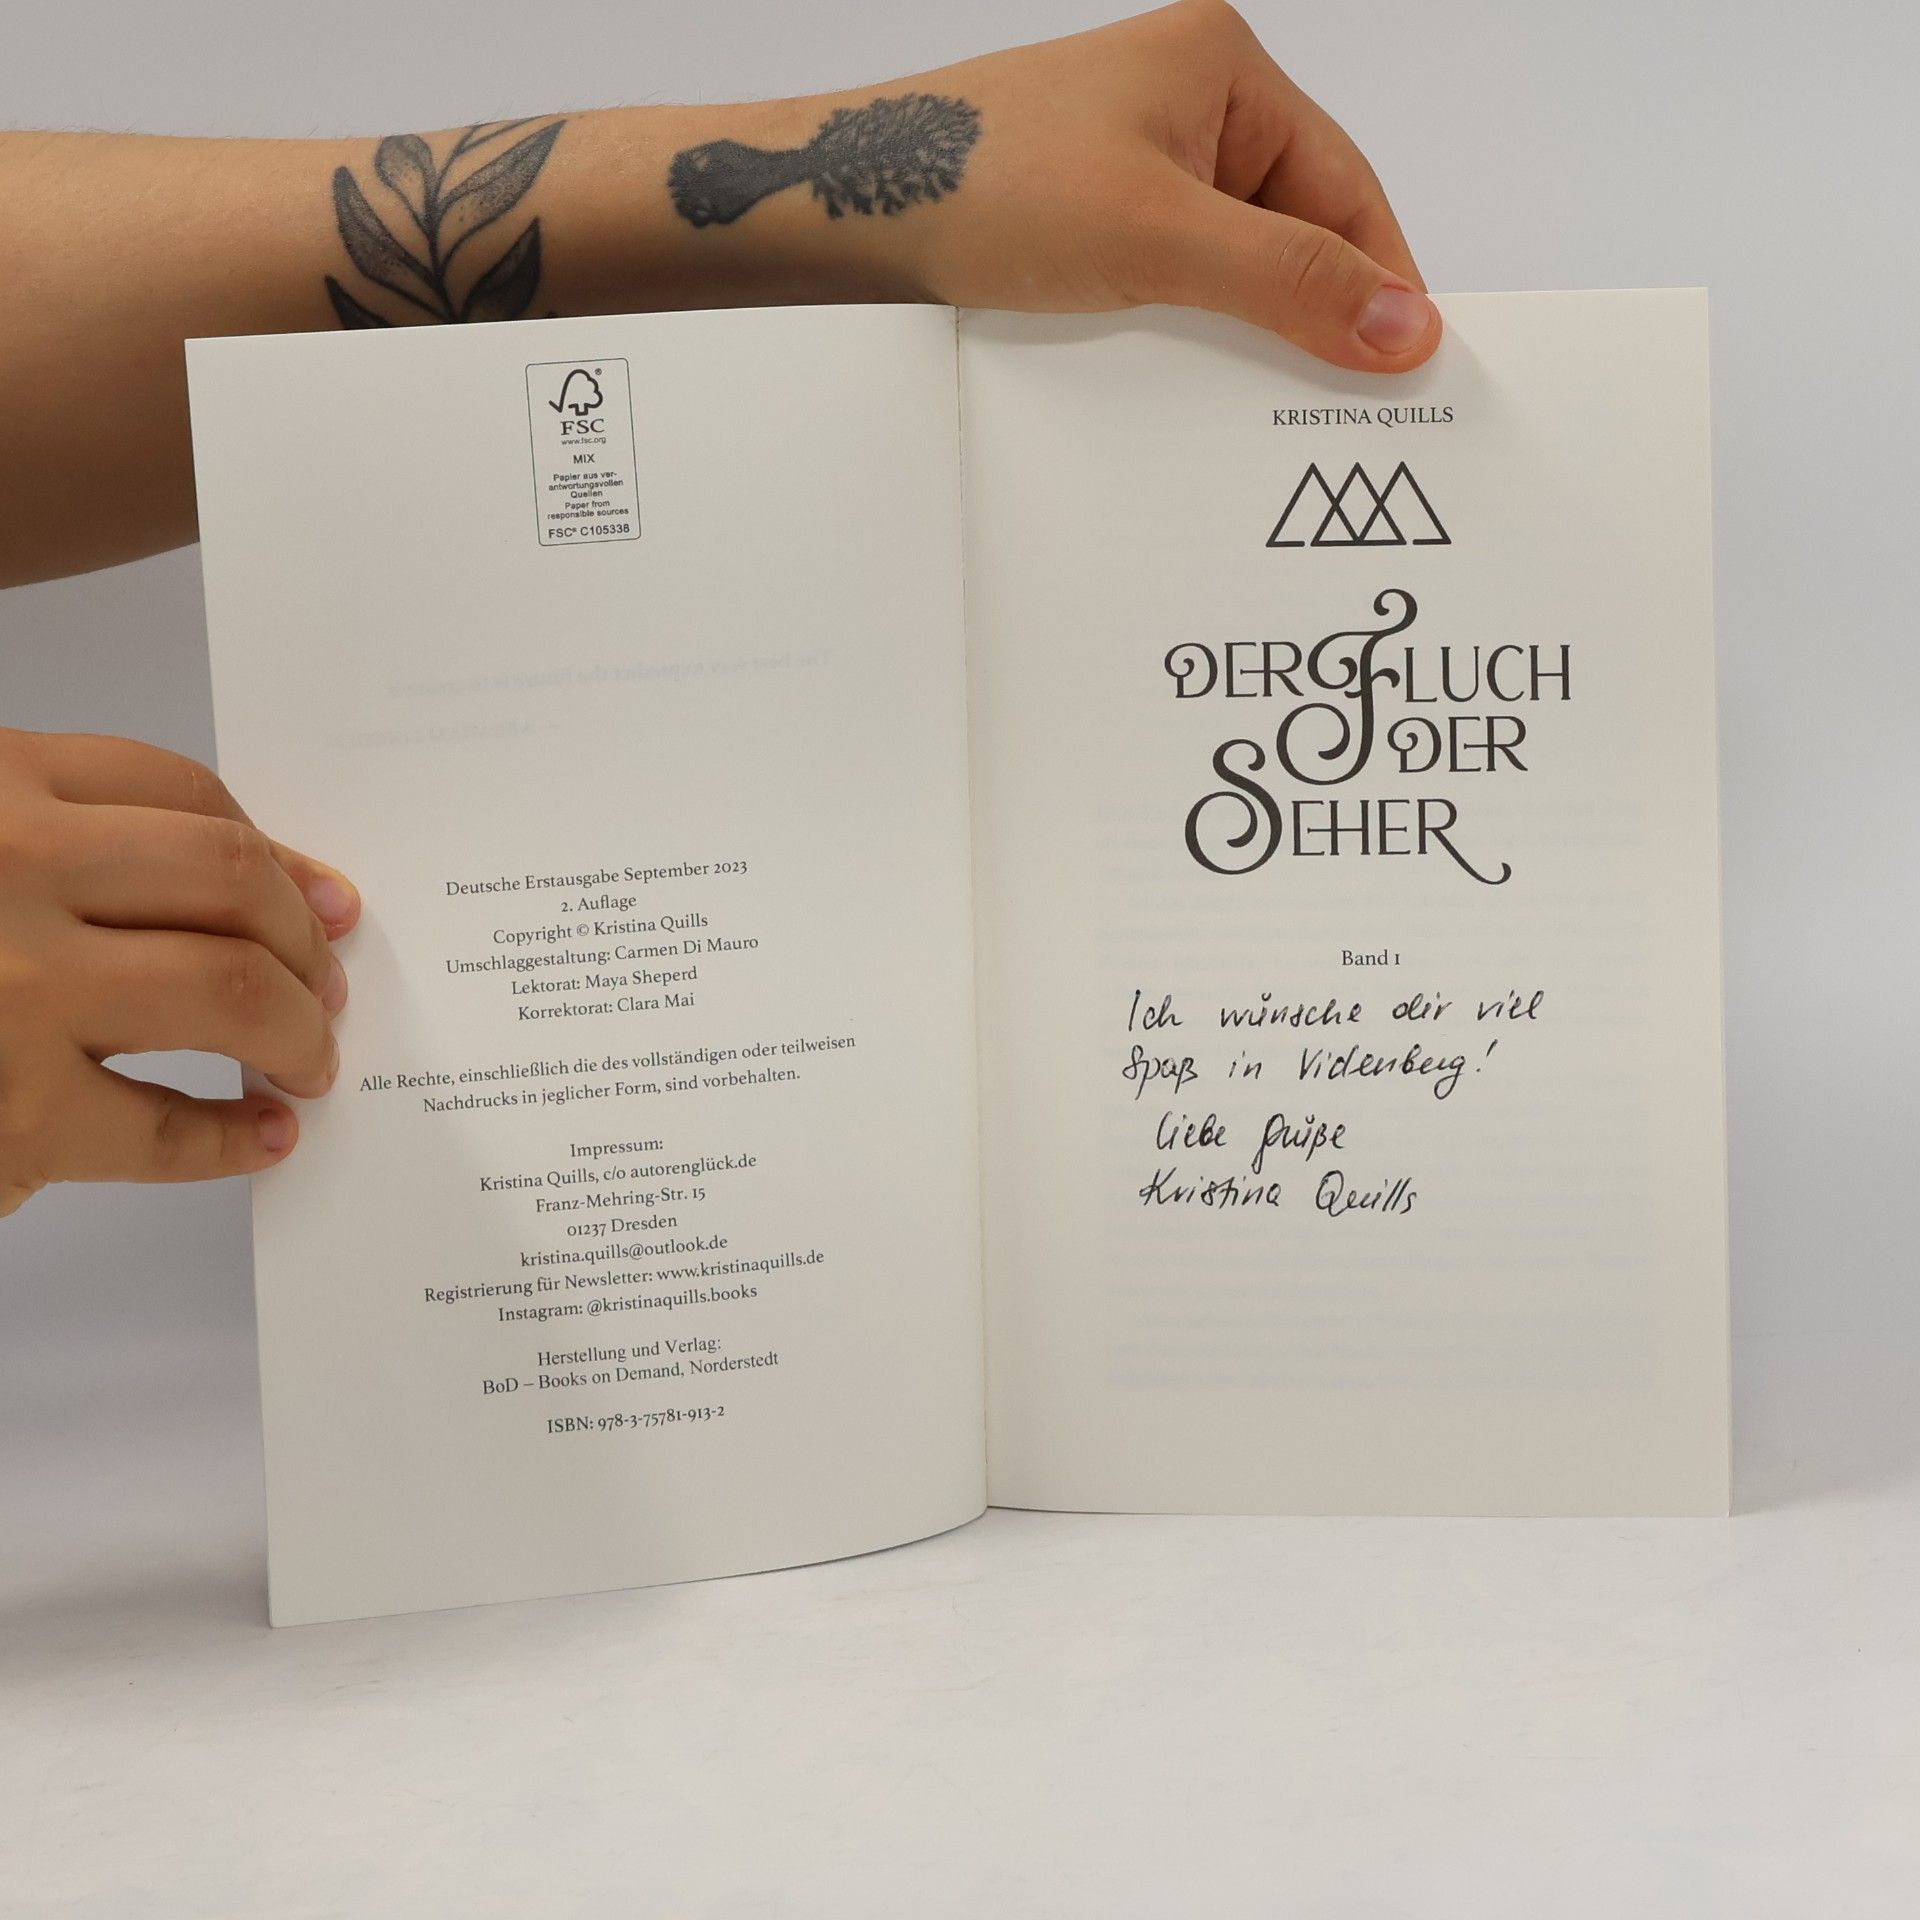 FSC®
www.fsc.org
MIX
Papier aus ver-
antwortungsvollen
Quellen
Paper from
responsible sources
FSC® C105338
Deutsche Erstausgabe September 2023
2. Auflage
Copyright © Kristina Quills
Umschlaggestaltung: Carmen Di Mauro
Lektorat: Maya Sheperd
Korrektorat: Clara Mai
Alle Rechte, einschließlich die des vollständigen oder teilweisen
Nachdrucks in jeglicher Form, sind vorbehalten.
Impressum:
Kristina Quills, c/o autorenglück.de
Franz-Mehring-Str. 15
01237 Dresden
kristina.quills@outlook.de
Registrierung für Newsletter: www.kristinaquills.de
Instagram: @kristinaquills.books
Herstellung und Verlag:
BoD – Books on Demand, Norderstedt
ISBN: 978-3-75781-913-2
KRISTINA QUILLS
DER FLUCH
DER
SEHER
Band 1
Ich wünsche dir viel
Spaß in Videnberg!
Liebe Grüße
Kristina Quills